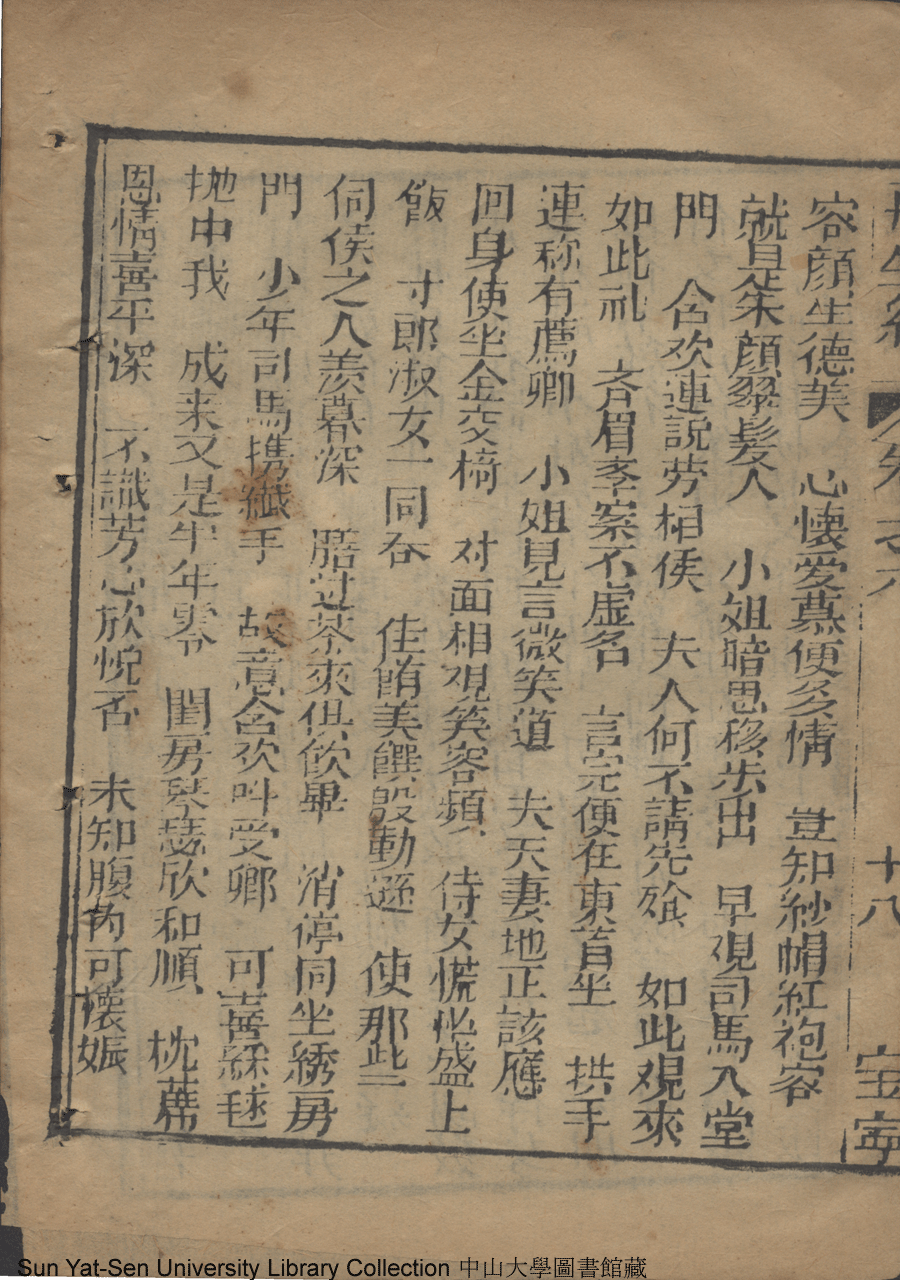 容顔生德美 心懐愛慕便多情 豈知紗帽紅袍客
就是朱顔翠髮人 小姐暗思移步出 早观司馬入堂
門 含欢連説劳相侯 夫人何不請先飱 如此观來
如此礼 斉眉季案不虚名 言完便在東首坐 拱手
連称有薦卿 小姐見言微笑道 夫天妻地正該應
回身使坐金交椅 对面相观笑容頻 侍女慌忙盛上
飯 才郎淑女一同吞 佳餚美饌殷勤遜 使那些
伺侯之人羡慕深 膳过茶來俱飲畢 消停同坐綉房
門 少年司馬携纖手 故意含欢叫受卿 可喜綵毬
抛中我 成来又是半年零 閨房琴瑟欣和順 枕蓆
恩情喜平深 不識芳心欣悦否 未知腹内可懐娠
十八
宝寧
Sun Yat-Sen University Library Collection 中山大學圖書館藏